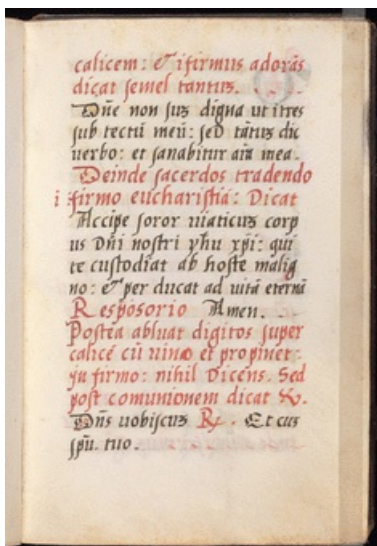 calicem: & ifirmus adorās
dicat semel tantuʒ.
Dñe non suʒ digna ut itres
sub tectū meū: sed tātuʒ dic
uerbo: et sanabitur aīa mea.
Deinde sacerdos tradendo
ifirmo eucharistiā: Dicat
Accipe soror uiaticuʒ corp
us Dñi nostri yhu xpi: qui
te custodiat ab hoste malig
no: & per ducat ad uitā eternā
Resposorio Amen.
Postea abluat digitos super
calicē cū uino et propinet
īfirmo: nihil Dicens. Sed
post comunionem dicat
Dñs uobiscuʒ ℟. Et cuʒ
spū. tuo.